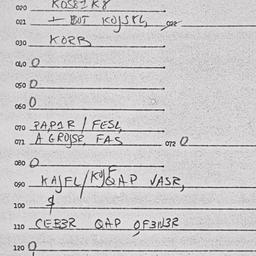 020 KOS81K8
021 + BOT KOJSKL, 022
030 KORB
040 0
050 0
060 0
070 PAPIR / FESL,
071 A GROJSE, FAS 072 0
080 0
090 KAJFL/KUFQAP VASR,
100
110 CEB3R QAP OF3N3R
120 0